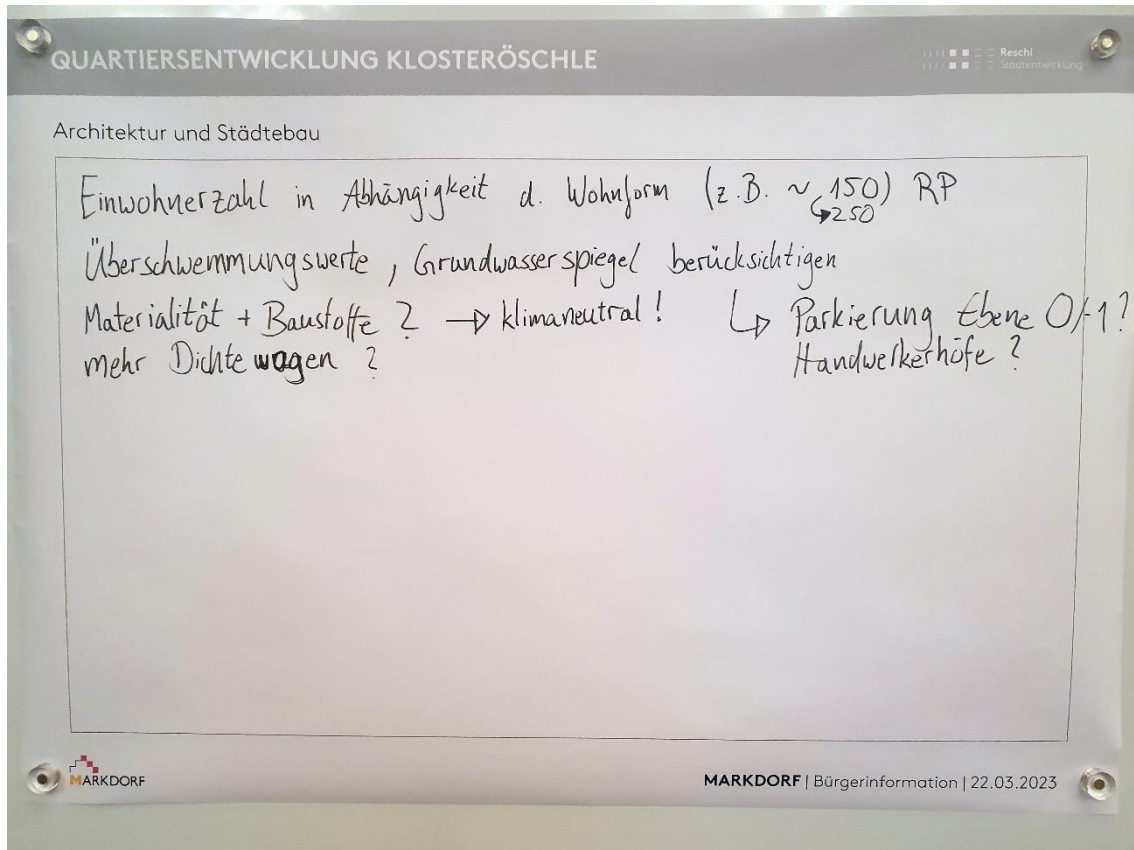 QUARTIERSENTWICKLUNG KLOSTERÖSCHLE
Reschl
Stadtentwicklung
Architektur und Städtebau
Einwohnerzahl in Abhängigkeit d. Wohnform (z.B. ~ 150) RP
↳250
Überschwemmungswerte, Grundwasserspiegel berücksichtigen
Materialität + Baustoffe? → klimaneutral! ↳ Parkierung Ebene 0/-1?
mehr Dichte wagen? Handwerkerhöfe?
MARKDORF
MARKDORF | Bürgerinformation | 22.03.2023